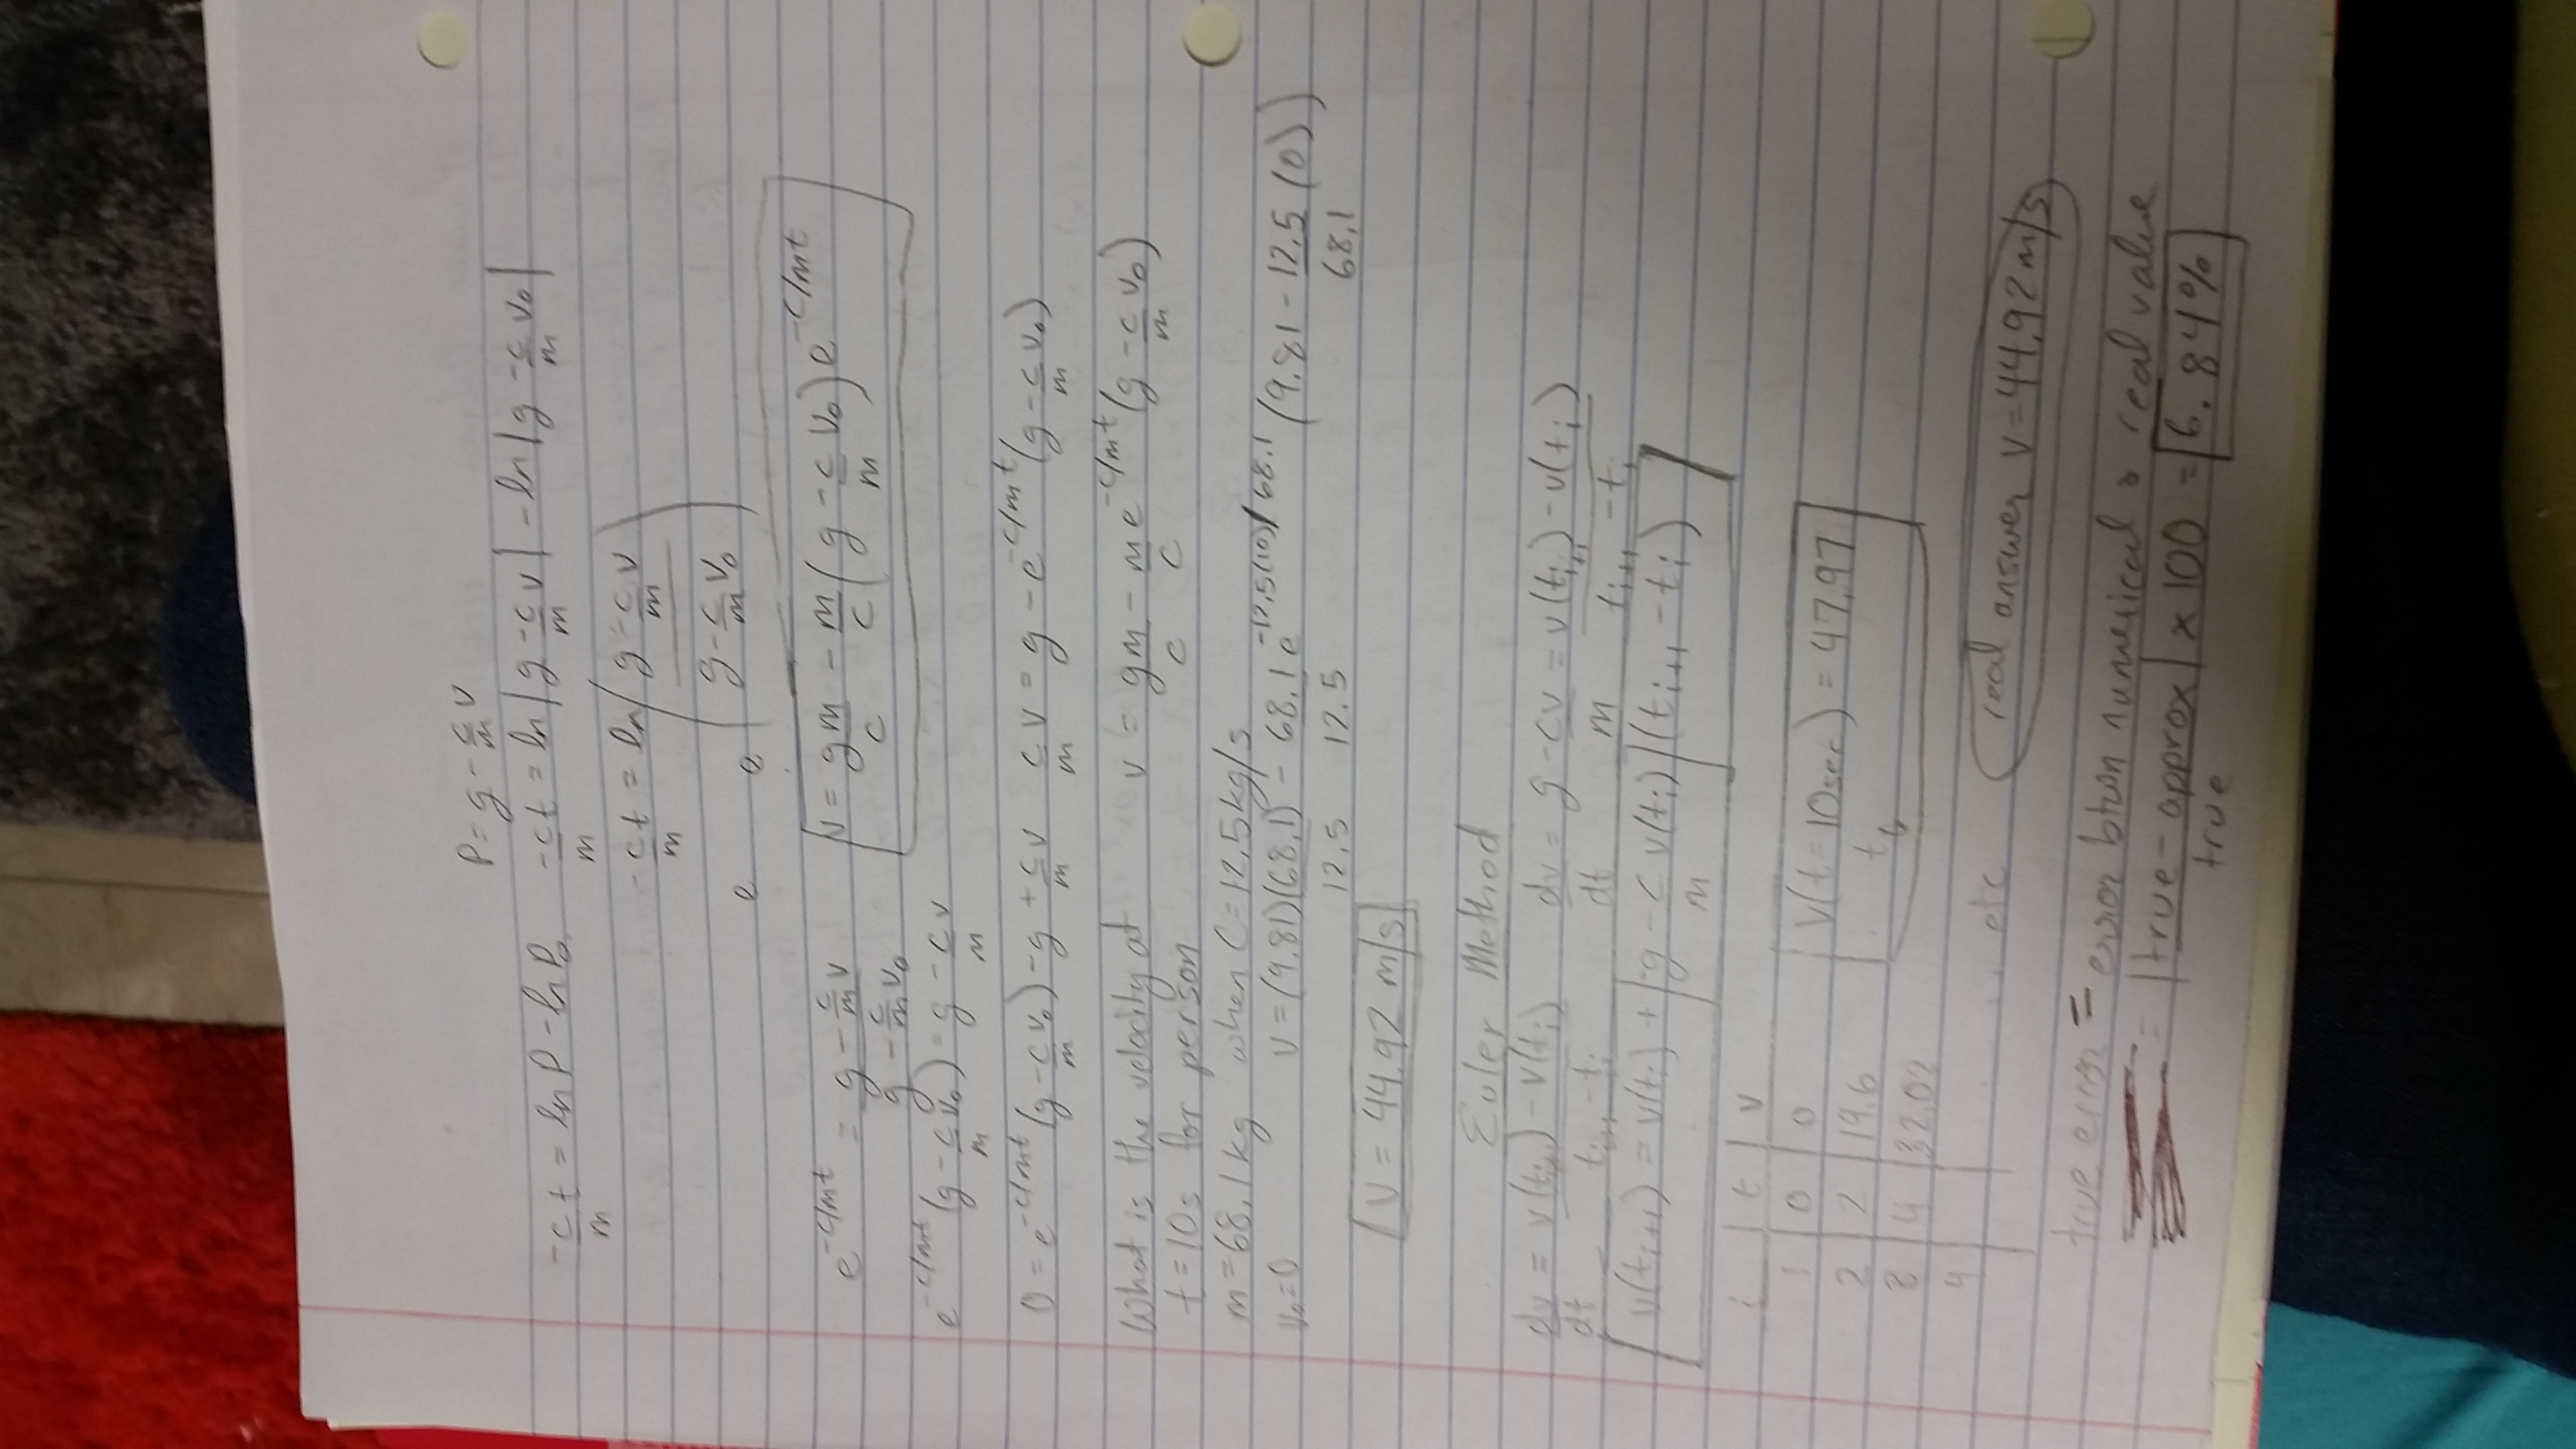 P = g - c/m v
-c/m t = ln P - ln P₀   -c/m t = ln |g - c/m v| - ln |g - c/m v₀|
-c/m t = ln ( (g - c/m v) / (g - c/m v₀) )
e   e
e^(-c/mt) = (g - c/m v) / (g - c/m v₀)   v = gm/c - m/c (g - c/m v₀) e^(-c/mt)
e^(-c/mt) (g - c/m v₀) = g - c/m v
0 = e^(-c/mt) (g - c/m v₀) - g + c/m v   c/m v = g - e^(-c/mt) (g - c/m v₀)
What is the velocity at   v = gm/c - m/c e^(-c/mt) (g - c/m v₀)
t = 10s for person
m = 68.1 kg when C = 12.5 kg/s
v₀ = 0   v = (9.81)(68.1)/12.5 - 68.1/12.5 e^(-12.5(10)/68.1) (9.81 - 12.5/68.1 (0))
V = 44.92 m/s
Euler Method
dv/dt = (v(ti+1) - v(ti)) / (ti+1 - ti)   dv/dt = g - cv/m = (v(ti+1) - v(ti)) / (ti+1 - ti)
v(ti+1) = v(ti) + [g - c/m v(ti)] (ti+1 - ti)
i | t | v
1 | 0 | 0   V(t = 10sec) = 47.97
2 | 2 | 19.6   t6
3 | 4 | 32.02
4   ... etc   real answer V = 44.92 m/s
true error = error btwn numerical & real value
= |true - approx / true| x 100 = 6.84%